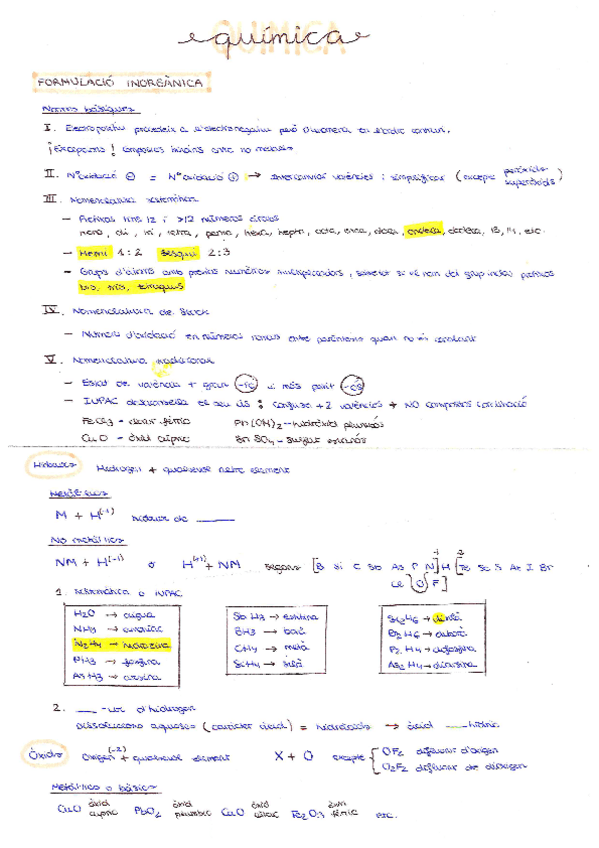 química
FORMULACIÓ INORGÀNICA
Normes bàsiques
I. Electropositiu precedeix a l'electronegatiu però s'anomena en ordre contrari.
¡Excepcions!
II. Nº oxidació ⊖ = Nº oxidació ⊕ → Intercanviar valències i simplificar (excepte peròxids superòxids)
III. Nomenclatura sistemàtica
- Prefixos fins 12 i >12 números
mono, di, tri, tetra, penta, hexa, hepta, octa, nona, deca, undeca, dodeca, 13, 14, etc.
- Hemi 1:2 Sesqui 2:3
- Grups d'àtoms amb prefixos numèrics multiplicadors, sobretot si el nom del grup inclou prefixos
bis, tris, tetraquis
IV. Nomenclatura de Stock
- Número d'oxidació en números romans entre parèntesis quan no és constant
V. Nomenclatura tradicional
- Estat de valència + gran -ic i més petit -ós
- IUPAC desaconsella el seu ús: confusa +2 valències + NO compostos coordinació
FeCl3 - clorur fèrric Pb(OH)2 - hidròxid plumbós
CuO - òxid cúpric Sn SO4 - sulfat estannós
Hidrurs Hidrogen + qualsevol altre element
Metàl·lics
M + H(-1) hidrur de ____
No metàl·lics
NM + H(-1) o H(+1) + NM segons [B Si C Sb As P N] H [Te Se S At I Br
Cl O F]
1. Sistemàtica o IUPAC
H2O → aigua
NH3 → amoníac
N2H4 → hidrazina
PH3 → fosfina
AsH3 → arsina
SbH3 → estibina
BH3 → borà
CH4 → metà
SiH4 → silà
Si2H6 → disilà
B2H6 → diborà
P2H4 → difosfina
As2H4 → diarsina
2. ____-ur d'hidrogen
Dissolucions aquoses (caràcter àcid) = hidràcids → àcid ____hídric
Òxids Oxigen(-2) + qualsevol element X + O excepte { OF2 difluorur d'oxigen
O2F2 difluorur de dioxigen
Metàl·lics o bàsics
CuO òxid cúpric PbO2 òxid plúmbic CuO òxid Fe2O3 òxid fèrric etc.